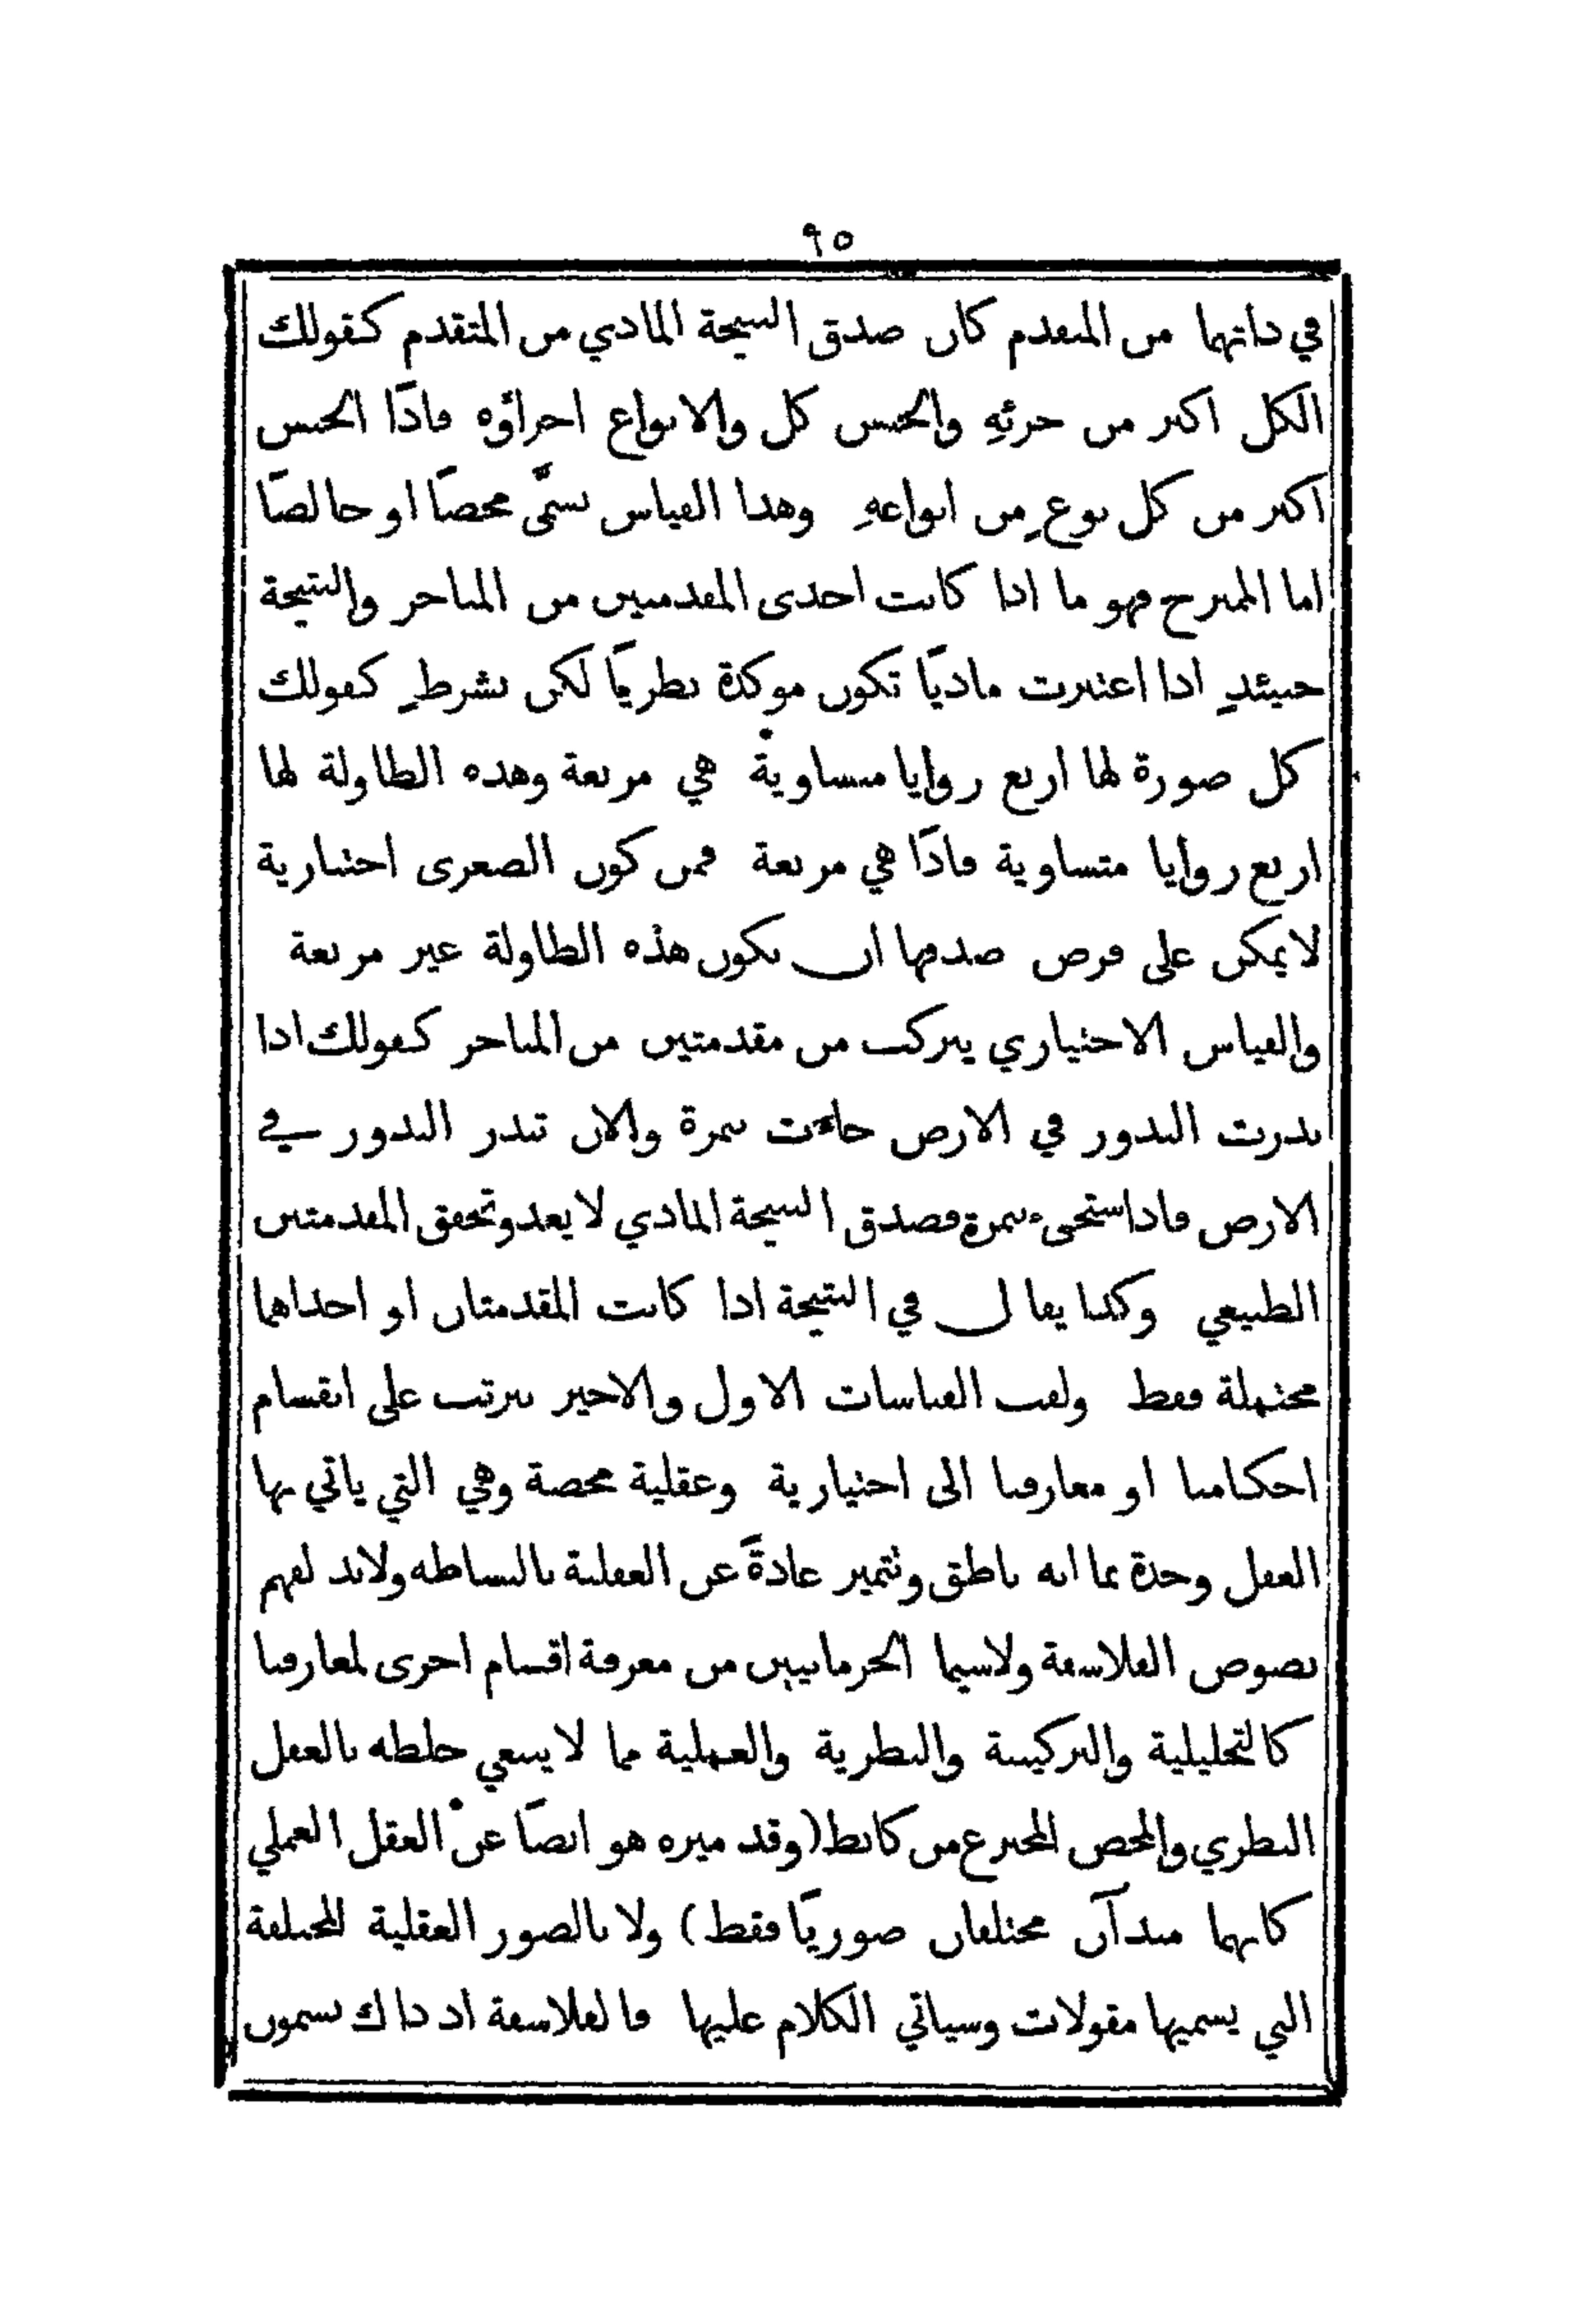 ٩٥
في ذاتهما من المتقدم كان صدق النتيجة المادي من المتقدم كقولك
الكل اكبر من جزئهِ والجنس كل والانواع اجزاؤه فاذًا الجنس
اكبر من كل نوعٍ من انواعهِ وهذا القياس يسمَّى محضًا او خالصًا
اما الممتزج فهو ما اذا كانت احدى المقدمتين من المتاخر والنتيجة
حينئذٍ اذا اعتبرت ماديًا تكون موكدة نظريًا لكن بشرطٍ كقولك
كل صورة لها اربع زوايا متساوية هي مربعة وهذه الطاولة لها
اربع زوايا متساوية فاذًا هي مربعة فمن كون الصغرى اختبارية
لا يمكن على فرض صدقها ان تكون هذه الطاولة غير مربعة
والقياس الاختياري يتركب من مقدمتين من المتاخر كقولك اذا
بذرت البذور في الارض جاءت بثمرة والان تبذر البذور في
الارض فاذا ستجيء بثمرة فصدق النتيجة المادي لا يعدو تحقق المقدمتين
الطبيعي وكذا يقال في النتيجة اذا كانت المقدمتان او احداهما
محتملة فقط ولقب القياسات الاول والاخير يترتب على انقسام
احكامنا او معارفنا الى اختيارية وعقلية محضة وهي التي ياتي بها
العقل وحدة بما انه ناطق وتتميز عادةً عن العقلية بالبساطه ولابد لفهم
نصوص الفلاسفة ولاسيما الجرمانيين من معرفة اقسام اخرى لمعارفنا
كالتحليلية والتركيبية والنظرية والعملية مما لا ينبغي خلطه بالعقل
النظري والمحض المخترع من كانط (وقد ميزه هو ايضًا عن العقل العملي
كانهما مبدآن مختلفان صوريًا فقط) ولا بالصور العقلية المختلفة
التي يسميها مقولات وسياتي الكلام عليها فالفلاسفة اذ ذاك يسمون